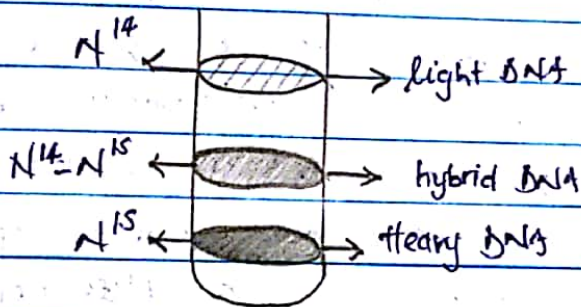 N¹⁴ light DNA
N¹⁴-N¹⁵ hybrid DNA
N¹⁵ Heavy DNA